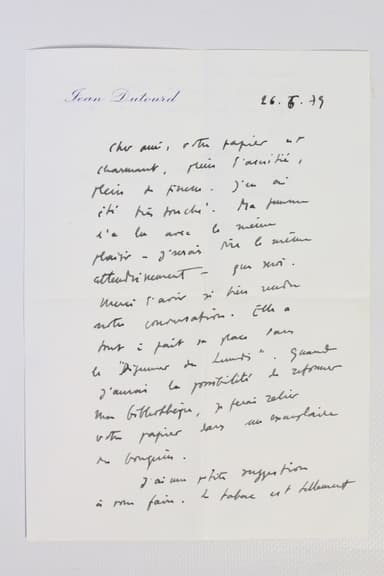 Jean Dutourd
26. 6. 79
Cher ami, votre papier est
charmant, plein d'amitié,
plein de finesse. J'en ai
été très touché. Ma femme
l'a lu avec le même
plaisir - j'oserais dire le même
attendrissement - que moi.
Merci d'avoir si bien rendu
notre conversation. Elle a
tout à fait sa place dans
le "Déjeuner du Lundi". Quand
j'aurai la possibilité de refermer
ma bibliothèque, je ferai relier
votre papier dans un exemplaire
du bouquin.
J'ai une petite suggestion
à vous faire. Le tabac est tellement